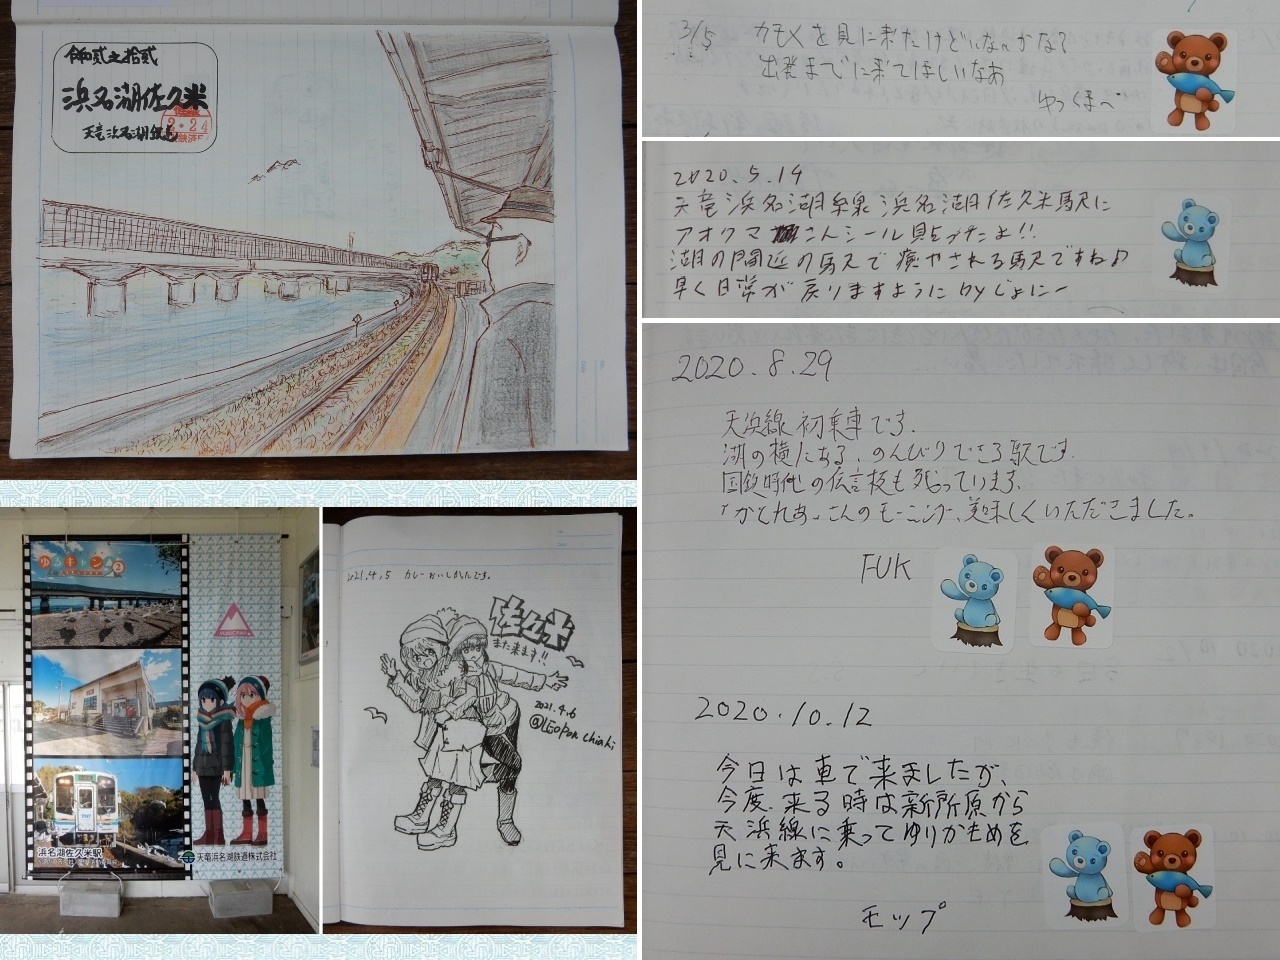 令和弐之拾弐
浜名湖佐久米
天竜浜名湖線
2.24
3/5 カモメを見に来たけどいないかな?
出発までに来てほしいなあ
ゆっくまへ
2020.5.19
天竜浜名湖線浜名湖佐久米駅に
アオクマさんシール貼ったよ!!
湖の間近の駅で癒やされる駅ですね♪
早く日常が戻りますように byじょにー
2020.8.29
天浜線初乗車です.
湖の横にある、のんびりできる駅です.
国鉄時代の伝言板も残っています.
「かとれあ」さんのモーニング、美味しくいただきました。
FUK
2020.10.12
今日は車で来ましたが、
今度来る時は新所原から
天浜線に乗ってゆりかもめを
見に来ます。
モップ
ゆるキャン△2
浜名湖佐久米駅
天竜浜名湖鉄道株式会社
2021.4.5 カレーおいしかったです。
佐久米
また来ます!!
2021.4.6
@LEOPON chiaki